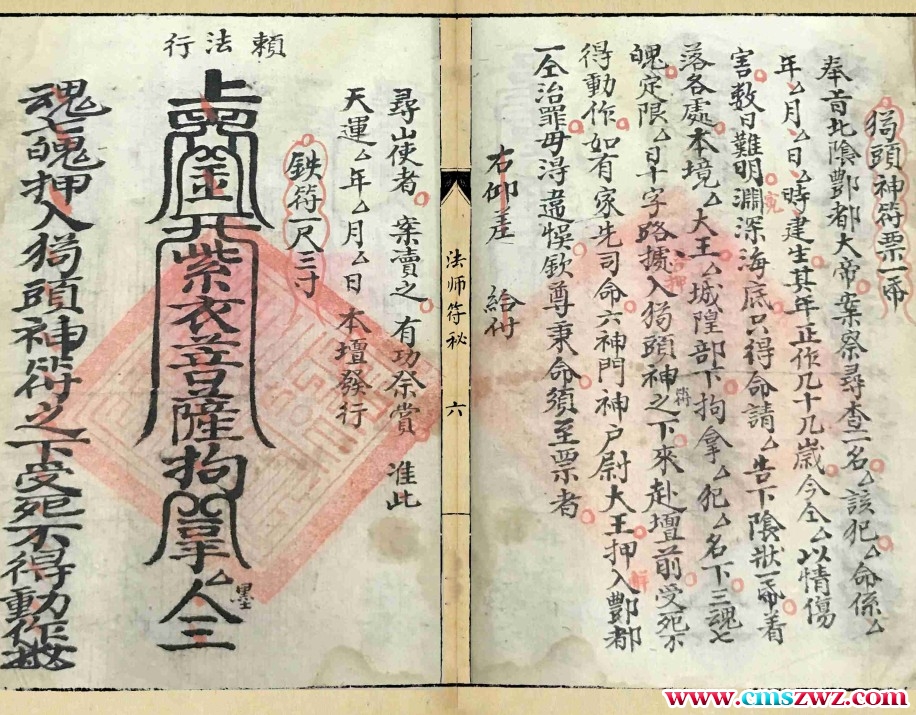 猖頭神符票一帋
奉旨北陰酆都大帝案祭尋查一名厶該犯厶命係厶
年厶月厶日厶時建生其年止作几十几歲今仝厶以情傷
害數日難明淵深海底只得命請厶告下陰狀一帋着
落各處本境厶大王厶城隍部卞拘拿厶犯厶名下三魂七
魄定限厶日十字路攄入猖頭神之下來赴壇前受死不
符
得動作如有家先司命六神門神户尉大王押入酆都
一仝治罪毋得違悞欽尊秉命須至票者
右仰差 給付
法师符秘 六
尋山使者 案賣之 有功祭賞 准此
天運厶年厶月厶日 本壇發行
鉄符一尺三寸
賴法行
紫衣菩薩拘 拿厶人三
墨
魂七魄押入猖頭神符之下受死不得動作
www.cmszwz.com